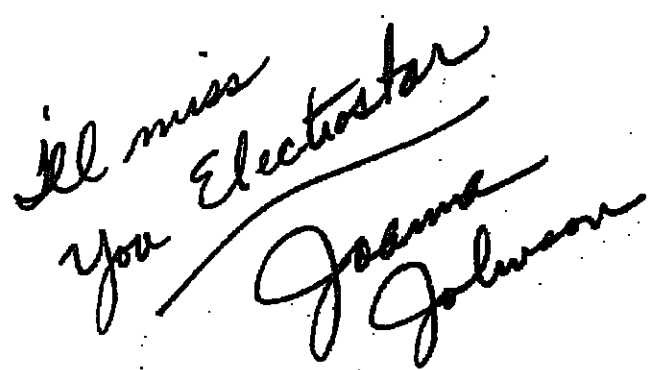 I'll miss
you Electrostar
Joanna
Johnson